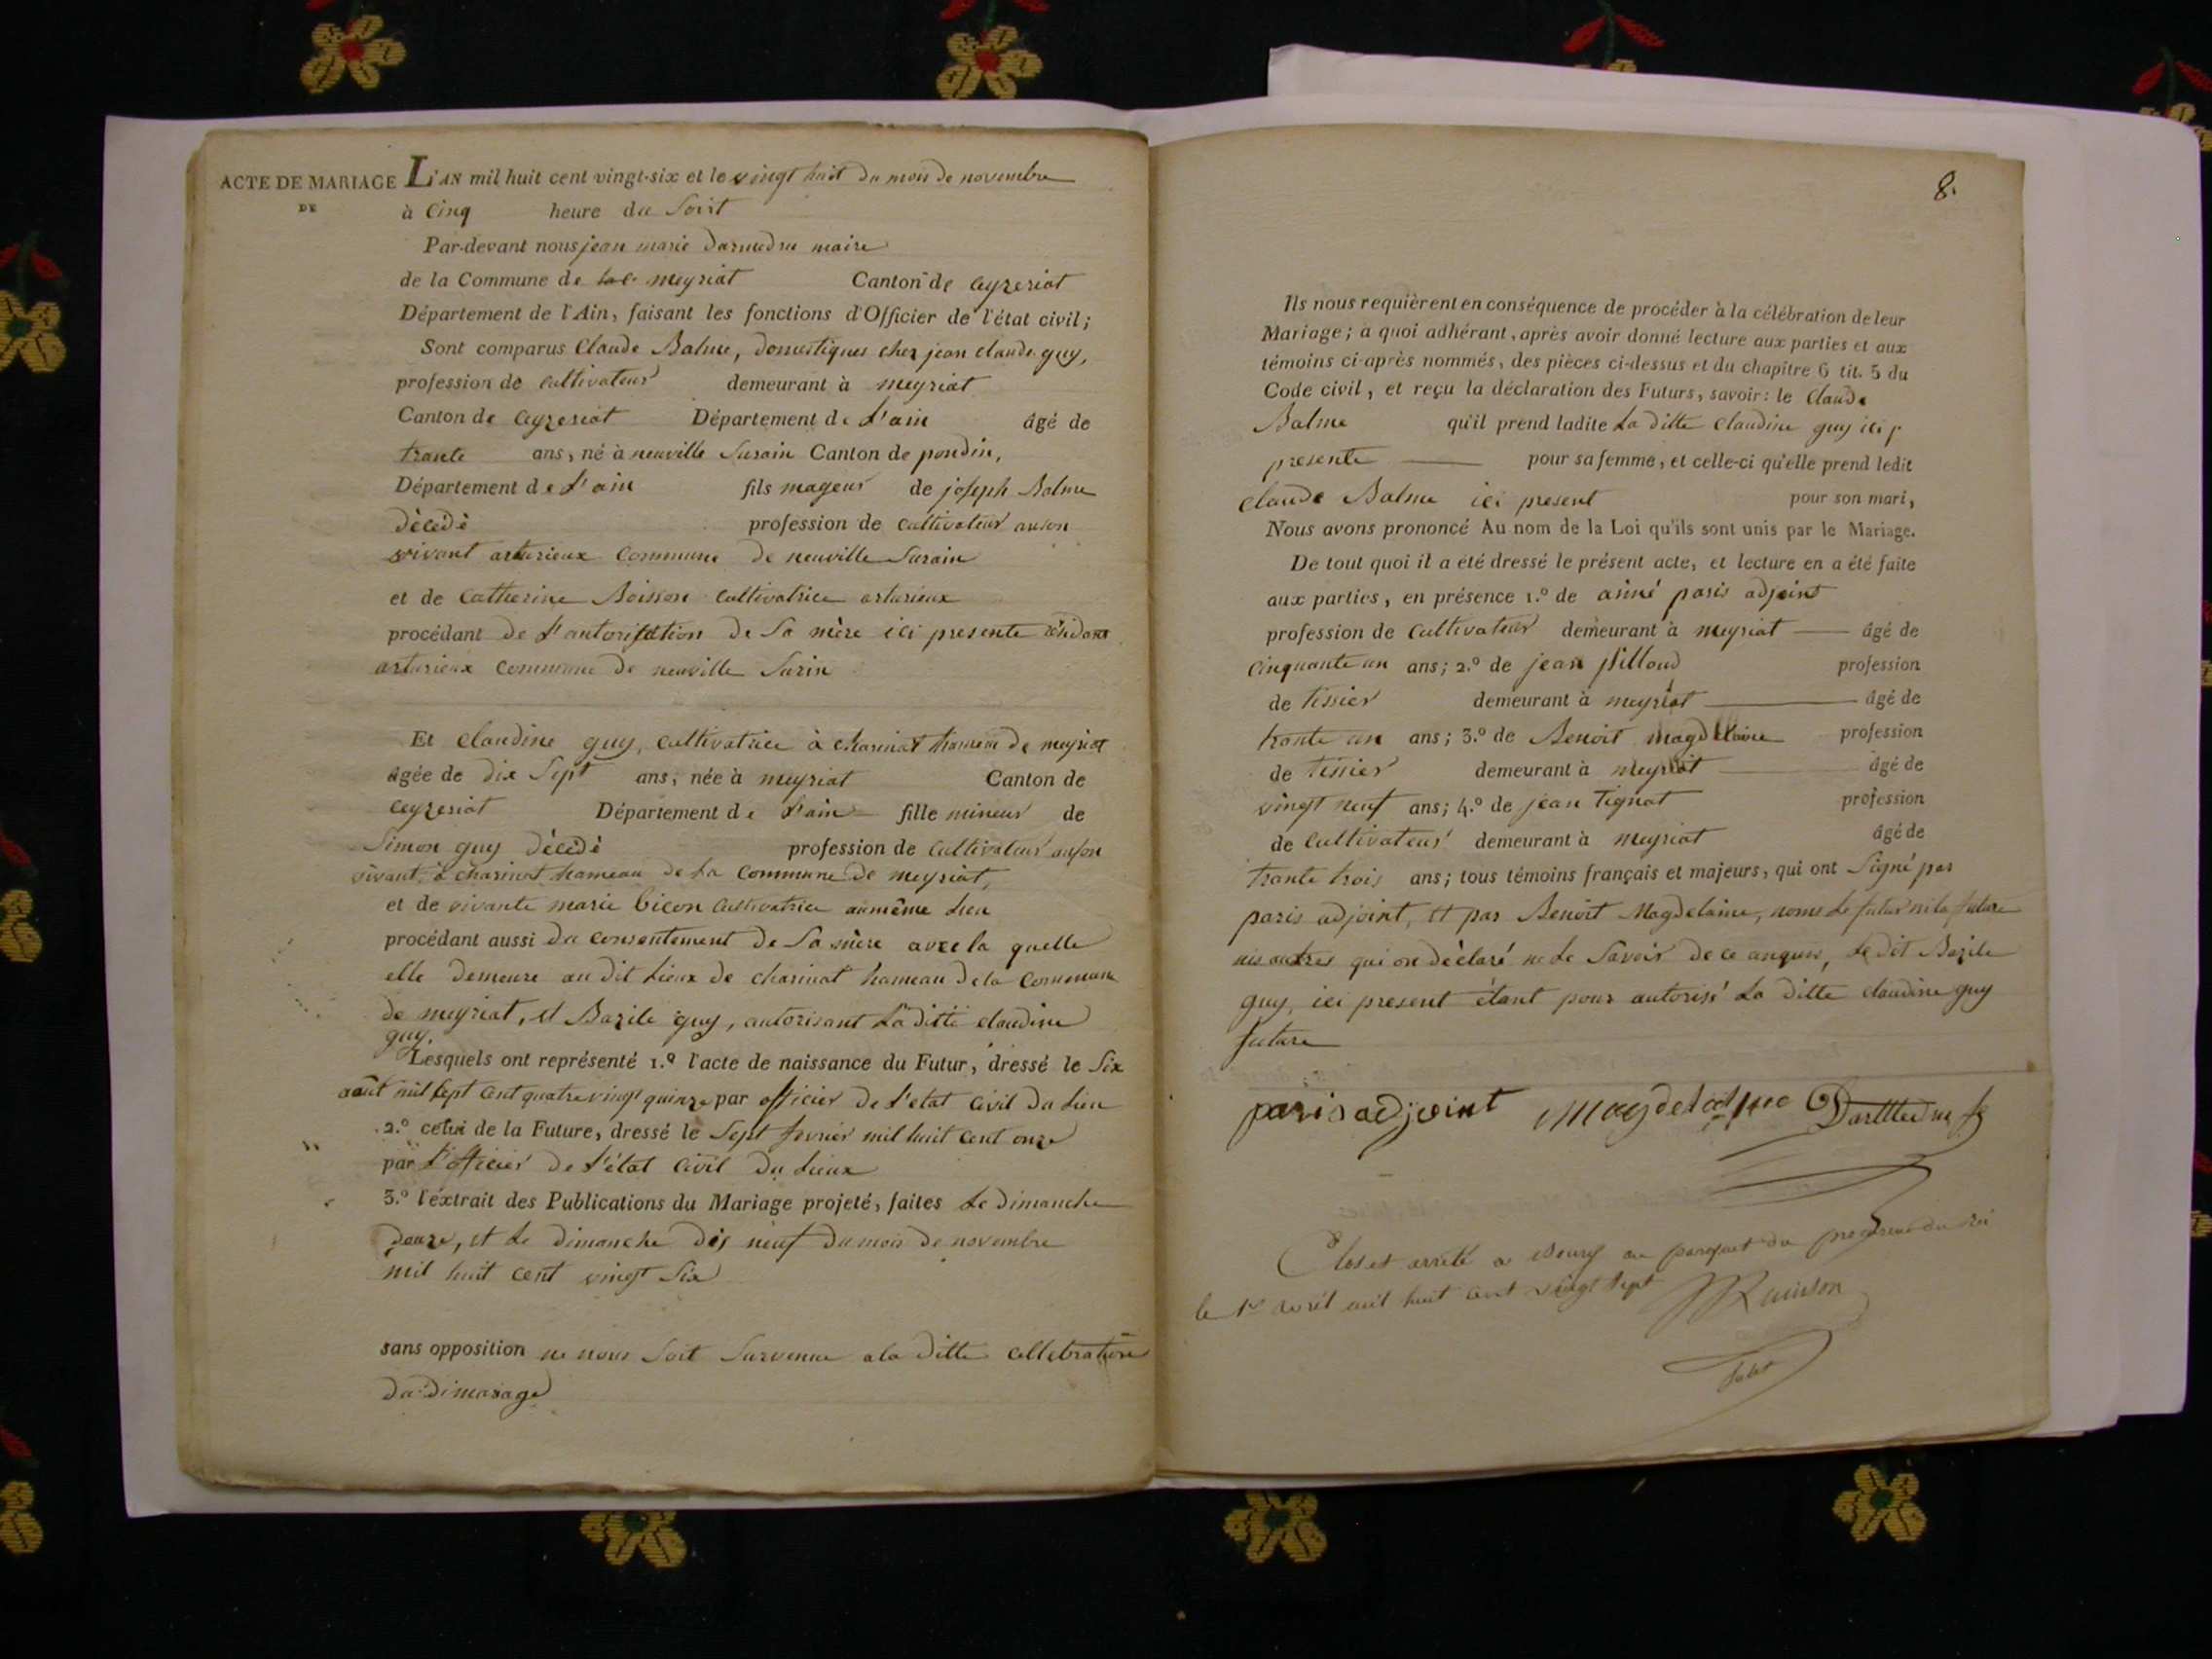 ACTE DE MARIAGE
DE
L'AN mil huit cent vingt-six et le vingt huit du mois de novembre
à Cinq heure du Soirt
Par-devant nous jean marie darmedru maire
de la Commune de meyriat Canton de Ceyzeriat
Département de l'Ain, faisant les fonctions d'Officier de l'état civil;
Sont comparus Claude Balme, domestiques chez jean claude guy,
profession de Cultivateur demeurant à meyriat
Canton de Ceyzeriat Département de L'ain âgé de
trante ans, né à neuville Surain Canton de pondin,
Département de L'ain fils mageur de joseph Balme
décédé profession de Cultivateur auson
vivant arturieux Commune de neuville Surain
et de Catherine Boisson Cultivatrice arturieux
procédant de L'autorisation de Sa mère ici presente résidant
arturieux Commune de neuville Surin
Et claudine guy, Cultivatrice à charinat hameau de meyriat
âgée de dix Sept ans, née à meyriat Canton de
Ceyzeriat Département de L'ain fille mineur de
Simon guy décédé profession de Cultivateur auson
vivant à charinat hameau de La Commune de meyriat,
et de vivante marie bicon Cultivatrice aumême Lieu
procédant aussi du Consentement de Sa mère avec la quelle
elle demeure au dit Lieux de charinat hameau dela Commune
de meyriat, et Bazile guy, autorisant La ditte claudine
guy.
Lesquels ont représenté 1.º l'acte de naissance du Futur, dressé le Six
août mil sept cent quatre vingt quinze par officier de L'etat Civil du Lieu
2.º celui de la Future, dressé le Sept fevrier mil huit cent onze
par L'officier de L'état Civil du Lieux
3.º l'éxtrait des Publications du Mariage projeté, faites Le dimanche
douze, et Le dimanche dix neuf du mois de novembre
mil huit cent vingt Six
sans opposition ne nous Soit Survenue ala ditte cellebration
du dimariage
8.
Ils nous requièrent en conséquence de procéder à la célébration de leur
Mariage; à quoi adhérant, après avoir donné lecture aux parties et aux
témoins ci-après nommés, des pièces ci-dessus et du chapitre 6 tit. 5 du
Code civil, et reçu la déclaration des Futurs, savoir: le Claude
Balme qu'il prend ladite La ditte Claudine guy ici
presente pour sa femme, et celle-ci qu'elle prend ledit
Claude Balme ici present pour son mari,
Nous avons prononcé Au nom de la Loi qu'ils sont unis par le Mariage.
De tout quoi il a été dressé le présent acte, et lecture en a été faite
aux parties, en présence 1.º de aimé paris adjoint
profession de Cultivateur demeurant à meyriat âgé de
Cinquante un ans; 2.º de jean pilloud profession
de tissier demeurant à meyriat âgé de
trante un ans; 3.º de Benoit magdelaine profession
de tissier demeurant à meyriat âgé de
vingt neuf ans; 4.º de jean tignat profession
de Cultivateur demeurant à meyriat âgé de
trante trois ans; tous témoins français et majeurs, qui ont Signé par
paris adjoint, et par Benoit Magdelaine, Le futur ni la future
nis autres qui on déclaré ne Le Savoir de ce anquis, Le dit Bazile
guy, ici present étant pour autorisé La ditte claudine guy
future
paris adjoint Magdelaine Darmedru
Clos et arrêté a Bourg au parquet du procureur du Roi
le 1er avril mil huit cent vingt Sept